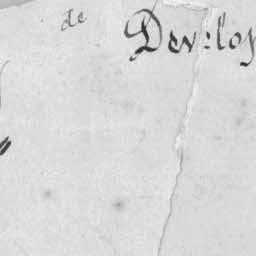 de Develop